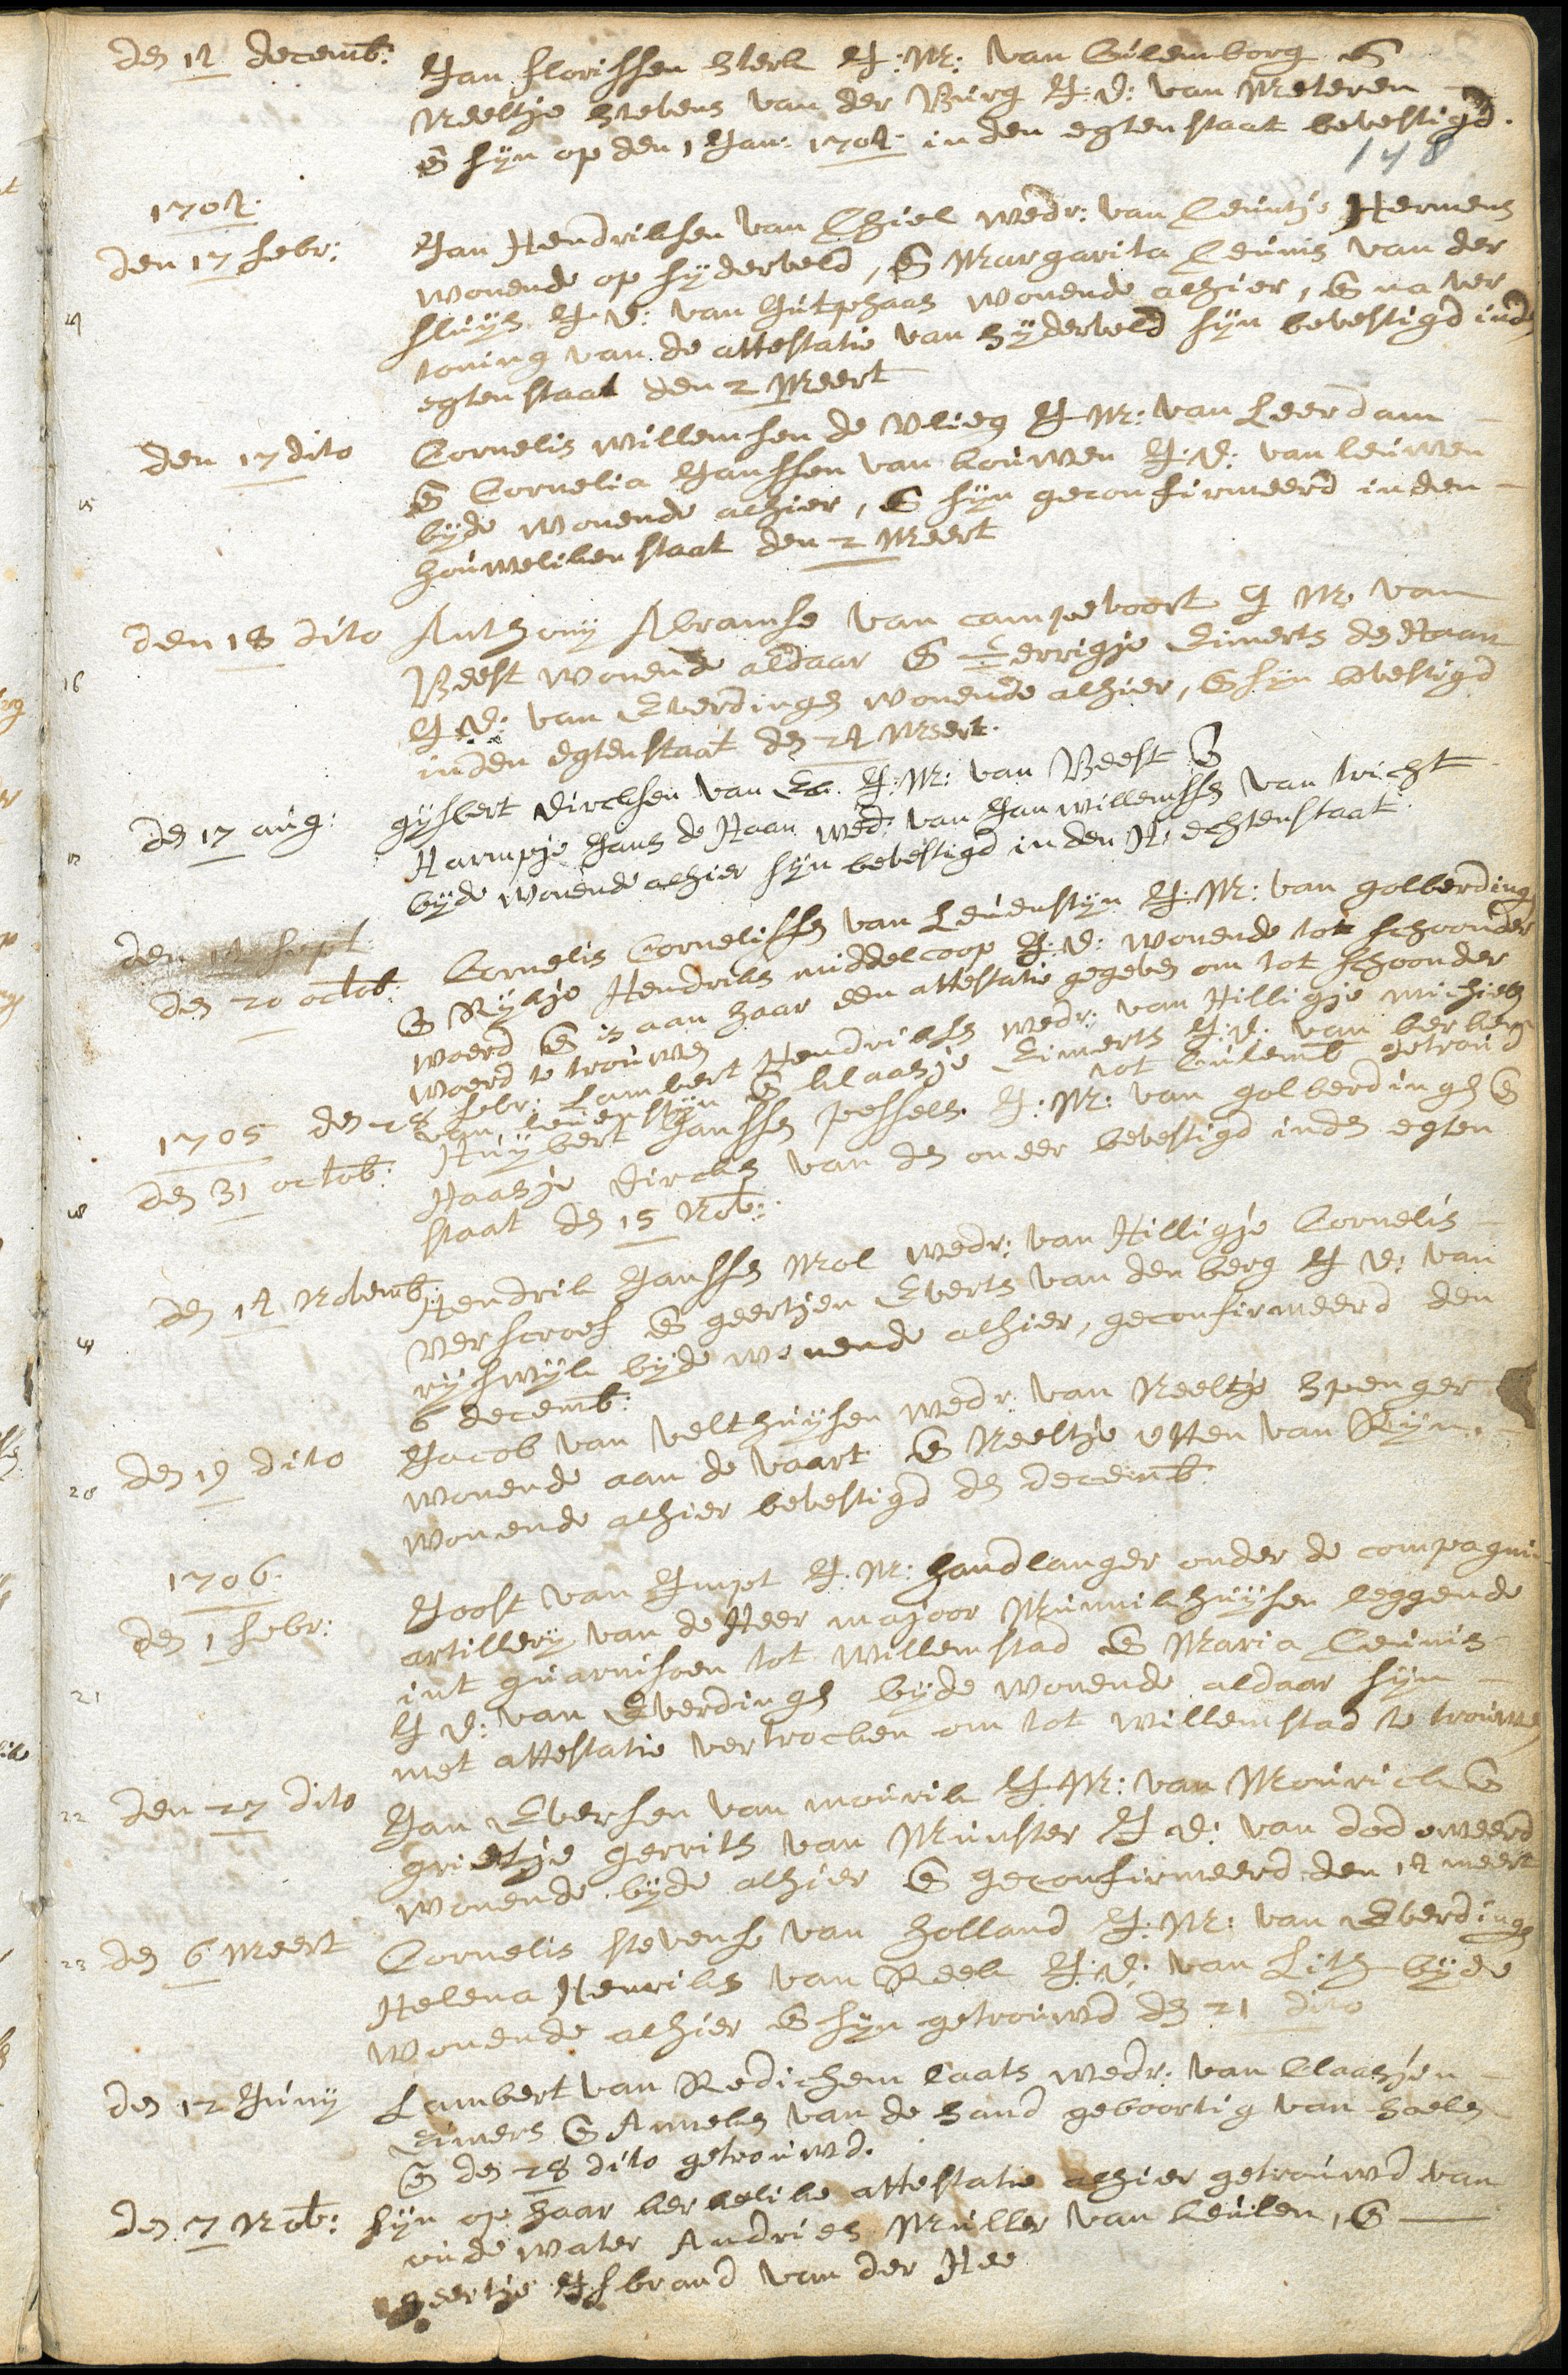 den 12 decemb: Jan florissen Sterk J:M: van Culemborg &
Neeltje Stevens van der Burg J:D: van Meteren
& sijn op den 1 Jan: 1704 in den egtenstaat bevestigd.
148
1704.
den 17 febr: Jan Hendriksen van Thiel wedr: van Teuntje Hermens
wonende op hyderveld, & Margarita Teunis van der
sluys J:D: van Jutphaas wonende alhier, & na ver
toning van de attestatie van hyderveld sijn bevestigd inde
egtenstaat den 2 Meert
15 den 17 dito Cornelis willemsen de Vlieg J:M: van Leerdam
& Cornelia Janssen van kouwen J:D: van leuwen
byde wonende alhier, & sijn geconfirmeerd inden
houweliken staat den 2 Meert
16 den 18 dito Anthony Abramse van campevoort J M van
Beest wonende aldaar & Gerrigje Eimerts de Haan
J:D: van Everdingen wonende alhier, & sijn bevestigd
inden egtenstaat den 24 Meert.
17 den 17 aug: gijsbert Dircksen van Ek J:M: van Beest &
Harmpje Jans de Haan wed: van Jan willemssen van tricht
byde wonende alhier sijn bevestigd in den H: echtenstaat
den 12 sept
den 20 octob: Cornelis Cornelissen van Leuenstijn J:M: van golberdingen
& Rykje Hendriks middelcoop J:D: wonende tot schoonder
woerd & is aan haar een attestatie gegeven om tot schoonder
woerd te trouwen
1705 den 28 febr: Lambert Hendrikse wedr: van Hilligje michiels
van leuenstijn & klaasje Eimerts J:D: van berkem
tot Culemb getroud
18 den 31 octob: Huijbert Janssen pessels J:M: van golberdingen &
Haasje Dircks van den oneer bevestigd inden egten
staat den 15 Nov:
19 den 14 Novemb: Hendrik Janssen Mol wedr: van Hilligje Cornelis
Verscroef & geertjen Everts van den berg J D: van
rijswijk byde wonende alhier, geconfirmeerd den
6 decemb:
20 den 19 dito Jacob van velthuijsen wedr: van Neeltje Spenger
wonende aan de vaart & Neeltje otten van Rijn.
wonende alhier bevestigd den decemb:
1706.
21 den 1 febr: Joost van Impt J:M: handlanger onder de compagnie
artillery van de Heer majoor Munnikhuijsen leggende
int guarnisoen tot Willemstad & Maria Teunis
J D: van Everdingen byde wonende aldaar sijn
met attestatie vertrocken om tot willemstad te trouwen
22 den 27 dito Jan Eversen van mourik J:M: van Mourick &
grietje gerrits van Munster J D: van dodeweerd
wonende byde alhier & geconfirmeerd den 14 meert
23 den 6 Meert Cornelis stevense van Holland J:M: van Everdingen
Helena Henriks van Reek J:D: van Lith byde
wonende alhier & sijn getrouwd den 21 dito
den 12 Juny Lambert van Redichem laats wedr: van Claasjen
Eimers & Anneken van de Sand geboortig van hoeken
& den 28 dito getrouwd.
den 7 Nov: sijn op haar kerkelike attestatie alhier getrouwd van
oudewater Andries Muller van keulen, &
geertje IJsbrand van der Hee